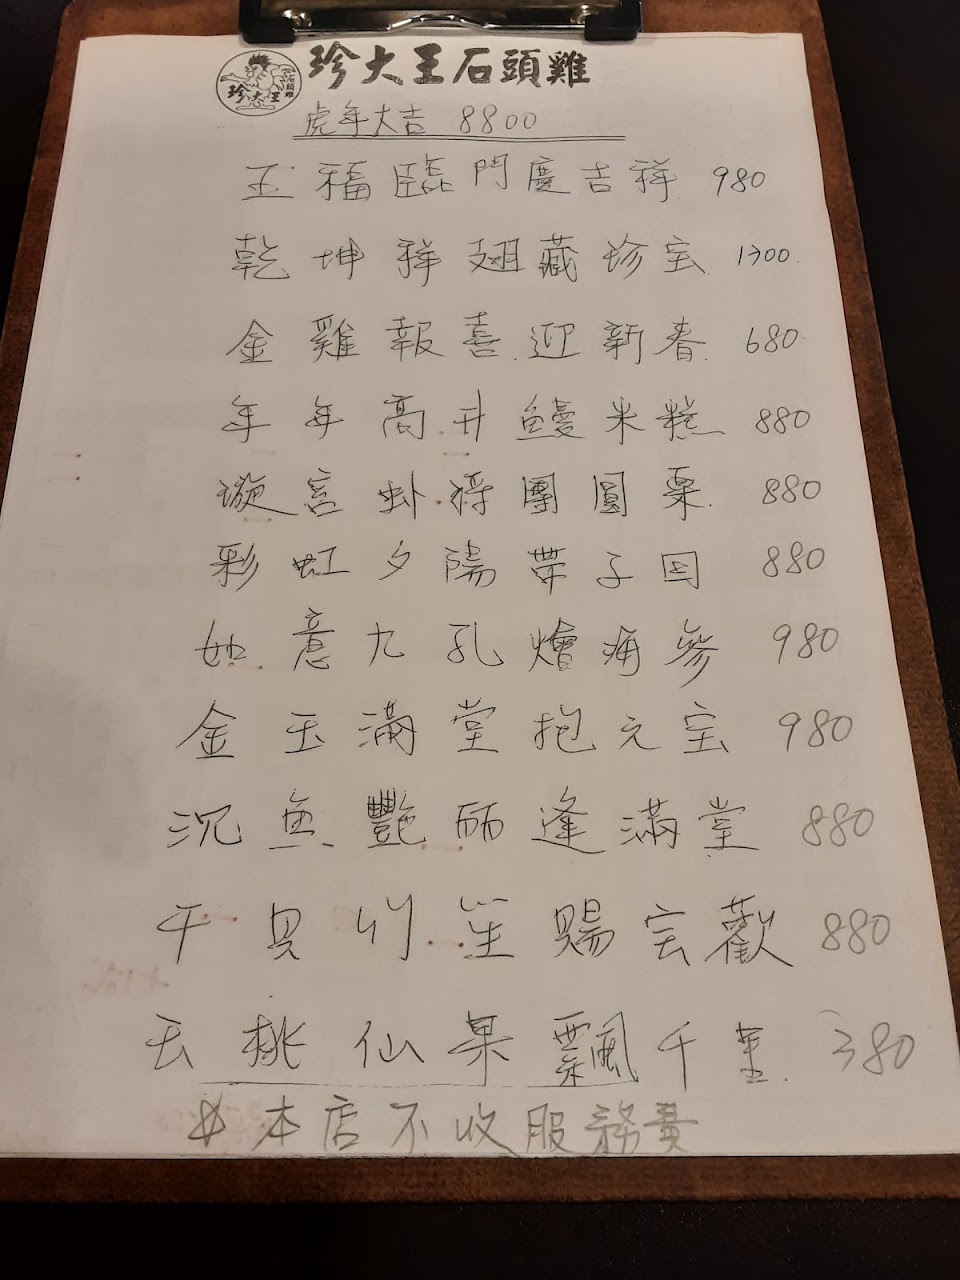 珍大王石頭雞
石頭雞
珍大王
虎年大吉 8800
五福臨門慶吉祥 980
乾坤祥翅藏珍宝 1300
金雞報喜迎新春 680
年年高升鰻米糕 880
璇宮蚪將團圓栗 880
彩虹夕陽帶子因 880
如意九孔燴海參 980
金玉滿堂抱元宝 980
沉魚艷丽逢滿堂 880
干貝竹笙賜宝歡 880
天桃仙果飄千里 380
本店不收服務費